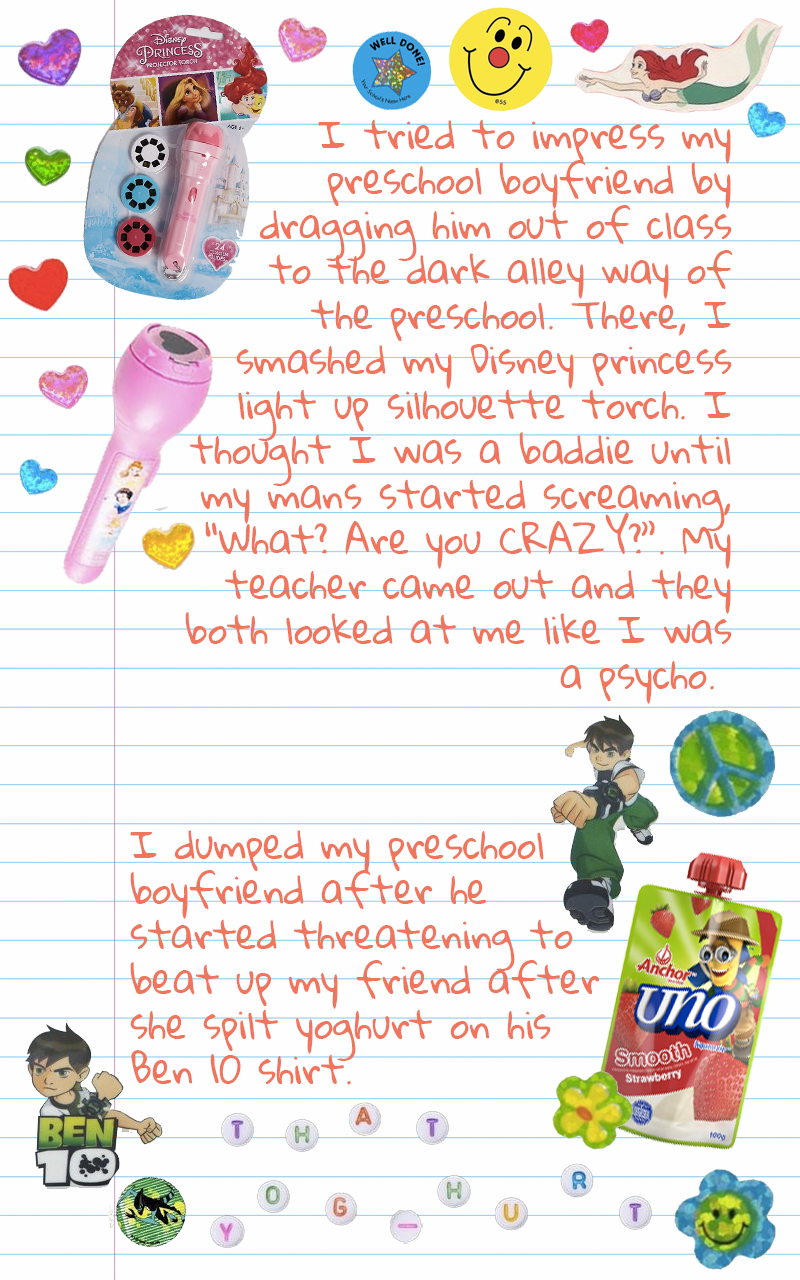 Disney
PRINCESS
PROJECTOR TORCH
WELL DONE!
AGE 3+
24
I tried to impress my
preschool boyfriend by
dragging him out of class
to the dark alley way of
the preschool. There, I
smashed my Disney princess
light up silhouette torch. I
thought I was a baddie until
my mans started screaming,
"What? Are you CRAZY?". My
teacher came out and they
both looked at me like I was
a psycho.
I dumped my preschool
boyfriend after he
started threatening to
beat up my friend after
she spilt yoghurt on his
Ben 10 shirt.
Anchor
uno
Smooth
Strawberry
100g
BEN
10
THAT
YOG-HURT